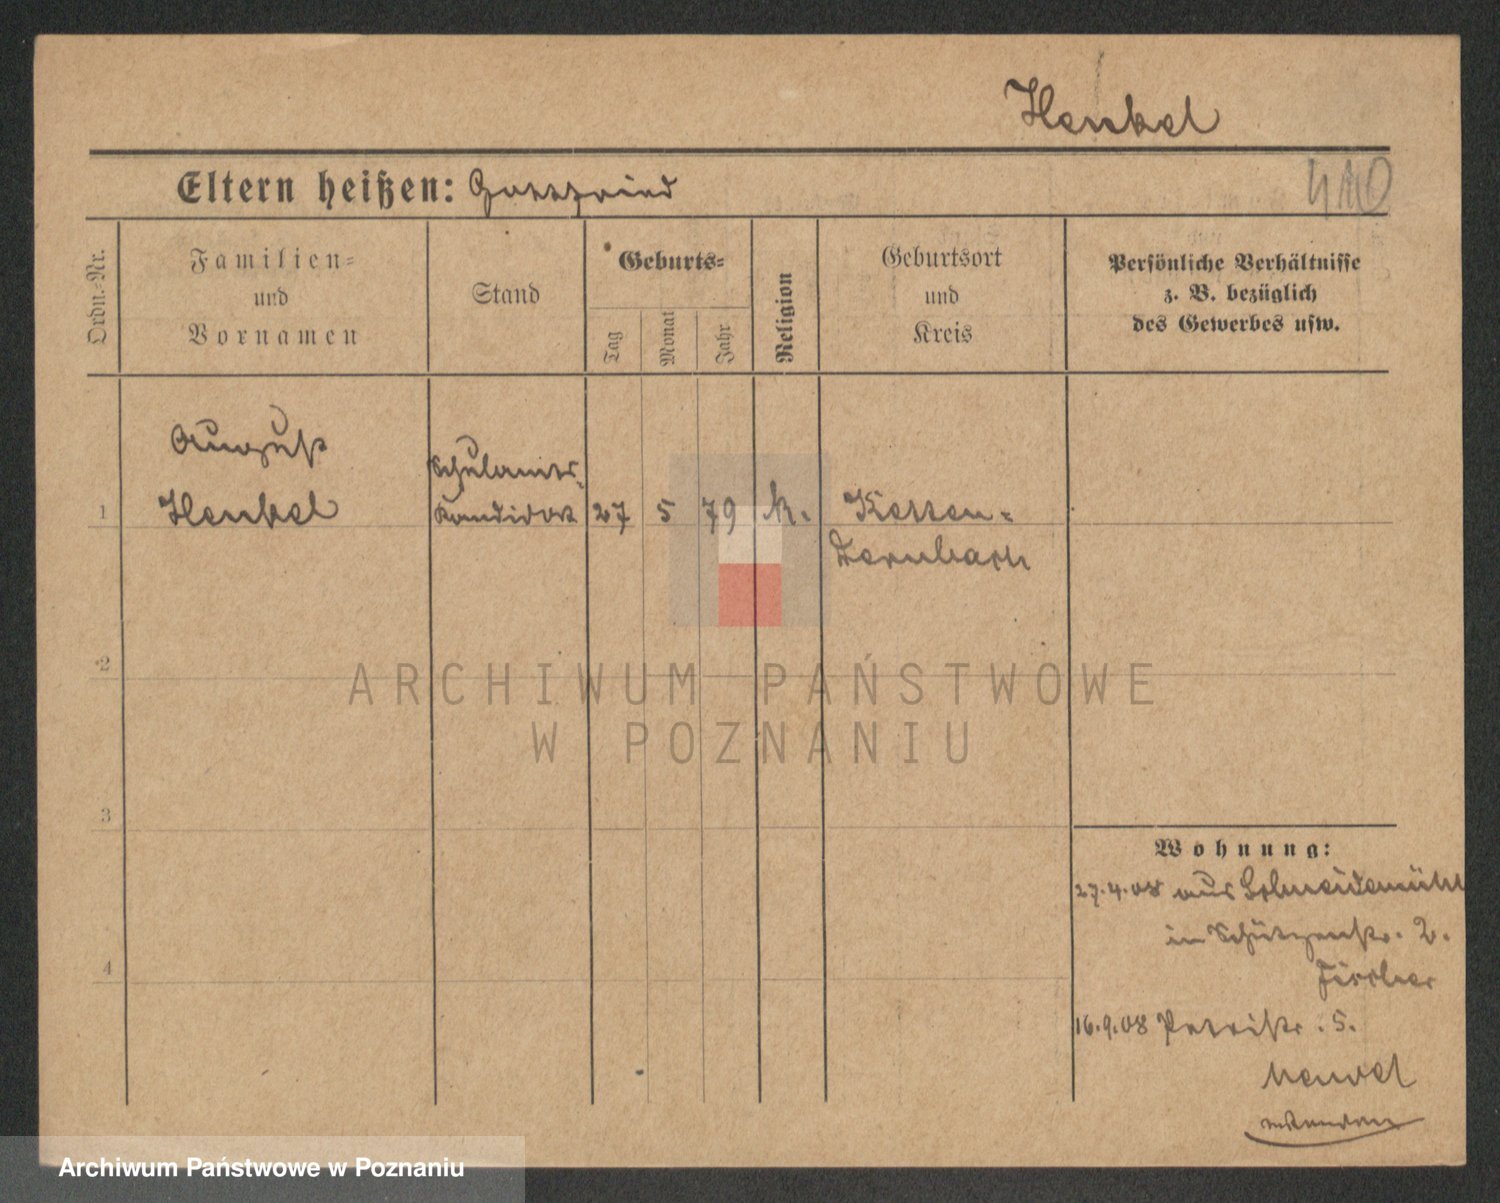 Henkel
410
Eltern heißen: Gottfried
Ordn.-Nr.
Familien-
und
Vornamen
Stand
Geburts-
Tag
Monat
Jahr
Religion
Geburtsort
und
Kreis
Persönliche Verhältnisse
z. B. bezüglich
des Gewerbes usw.
August
Schulamts-
1 Henkel kandidat 27 5 79 k. Ketten-
Dernbach
2
3
4
Wohnung:
27.4.08 aus Schneidemühl
in Schützenstr. 2.
16.9.08 Petristr. 5.
ARCHIWUM PAŃSTWOWE
W POZNANIU
Archiwum Państwowe w Poznaniu